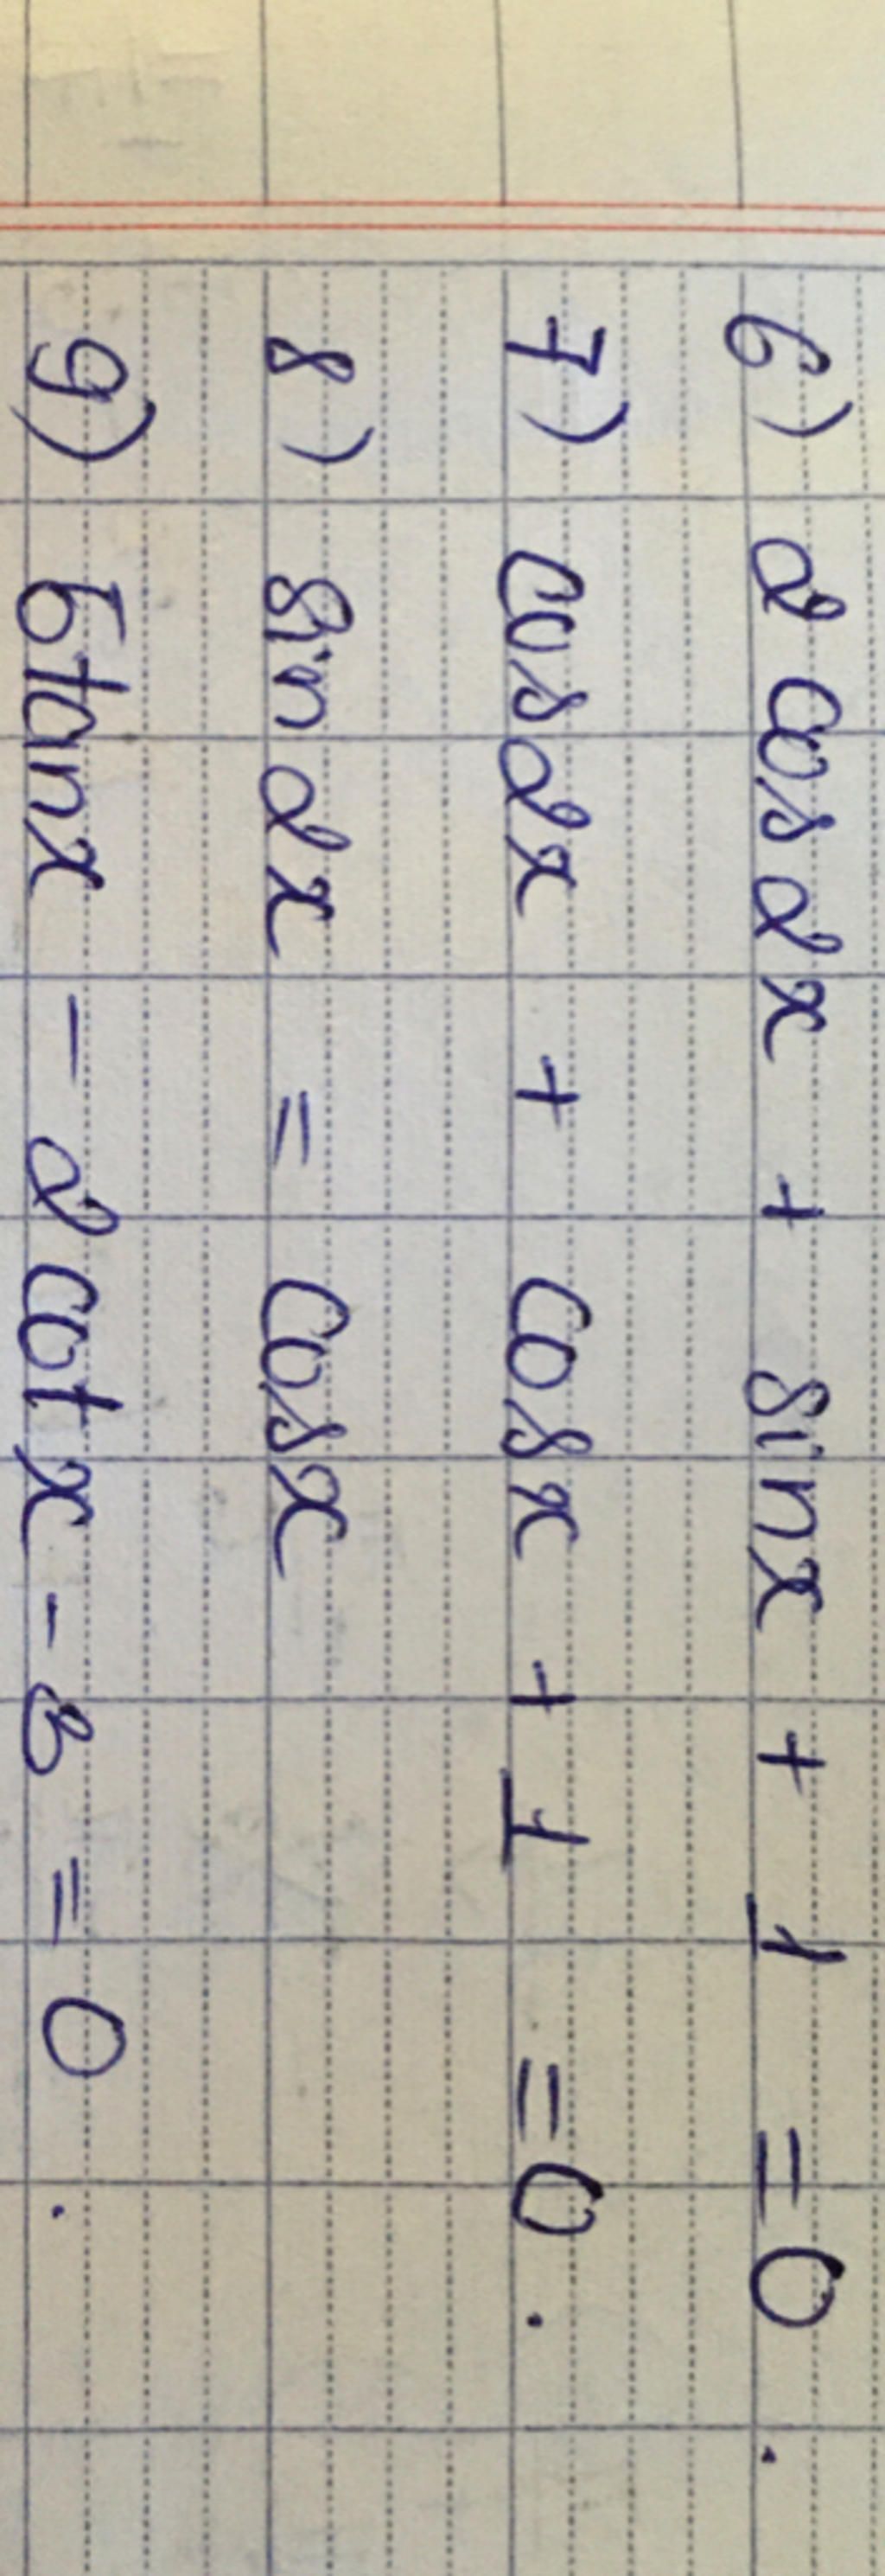 6) 2 cos2x + sinx + 1 = 0.
7) cos2x + cosx + 1 = 0.
8) sin2x = cosx
9) 5tanx - 2cotx - 3 = 0.